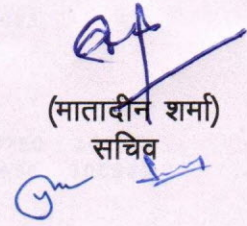 (मातादीन शर्मा)
सचिव